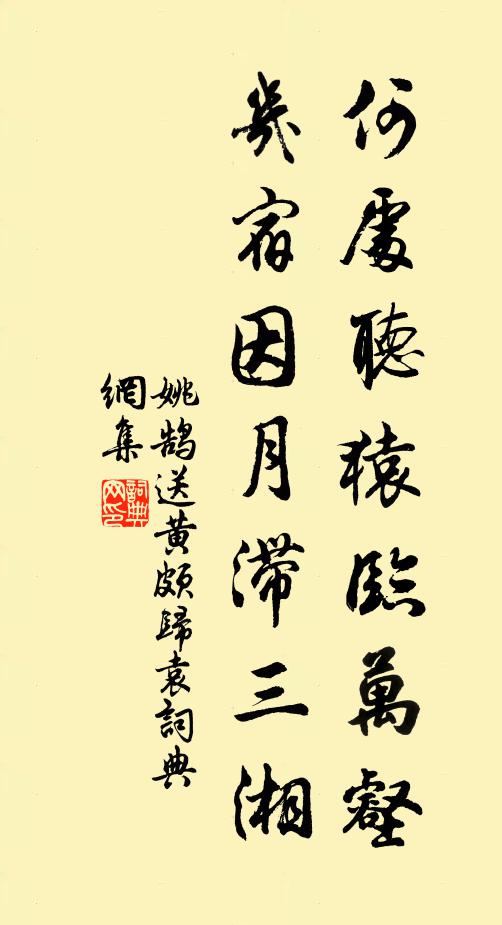 何處聽猿臨萬壑
幾宿因月滯三湘
姚鵠送黃頗歸袁詞典
網集
詞典
网印